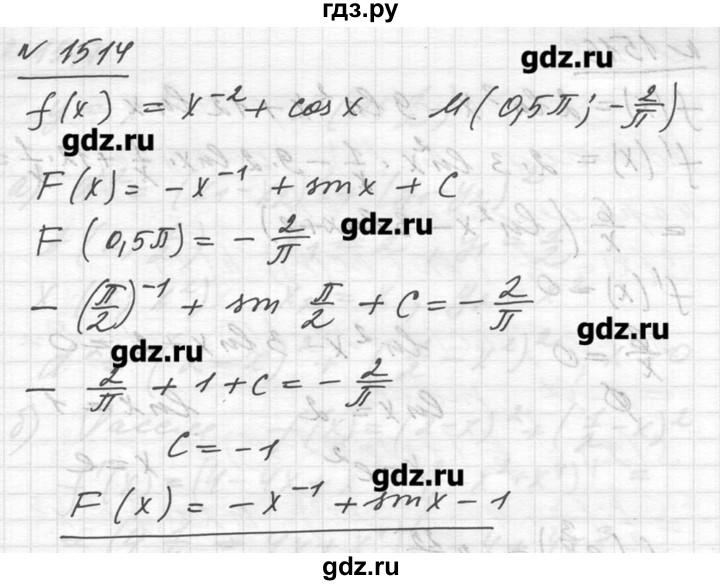 гдз.ру
№ 1514
gdz.ru
f(x) = x⁻² + cos x   M(0,5π; -2/π)
gdz.ru
F(x) = -x⁻¹ + sin x + C
gdz.ru
F(0,5π) = -2/π
-(π/2)⁻¹ + sin π/2 + C = -2/π
gdz.ru
gdz.ru
-2/π + 1 + C = -2/π
C = -1
gdz.ru
F(x) = -x⁻¹ + sin x - 1
gdz.ru